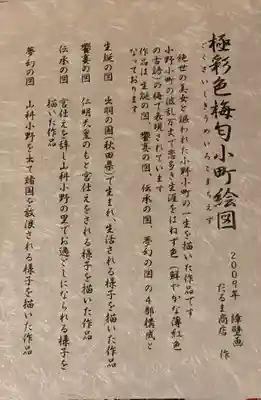 極彩色梅匂小町絵図
ごくさいしきうめいろこまちえず
2009年 障壁画
だるま商店 作
絶世の美女と謳われた小野小町の一生を描いた作品です
小野小町の波乱万丈で恋多き生涯をはねず色（鮮やかな薄紅色
の古語）の梅で表現されています
作品は生誕の図、饗宴の図、伝承の図、夢幻の図の4部構成と
なっております
生誕の図 出羽の国（秋田県）で生まれ、生活される様子を描いた作品
饗宴の図 仁明天皇のもと宮仕えをされる様子を描いた作品
伝承の図 宮仕えを辞し山科小野の里でお過ごしになられる様子を
描いた作品
夢幻の図 山科小野を出て諸国を放浪される様子を描いた作品